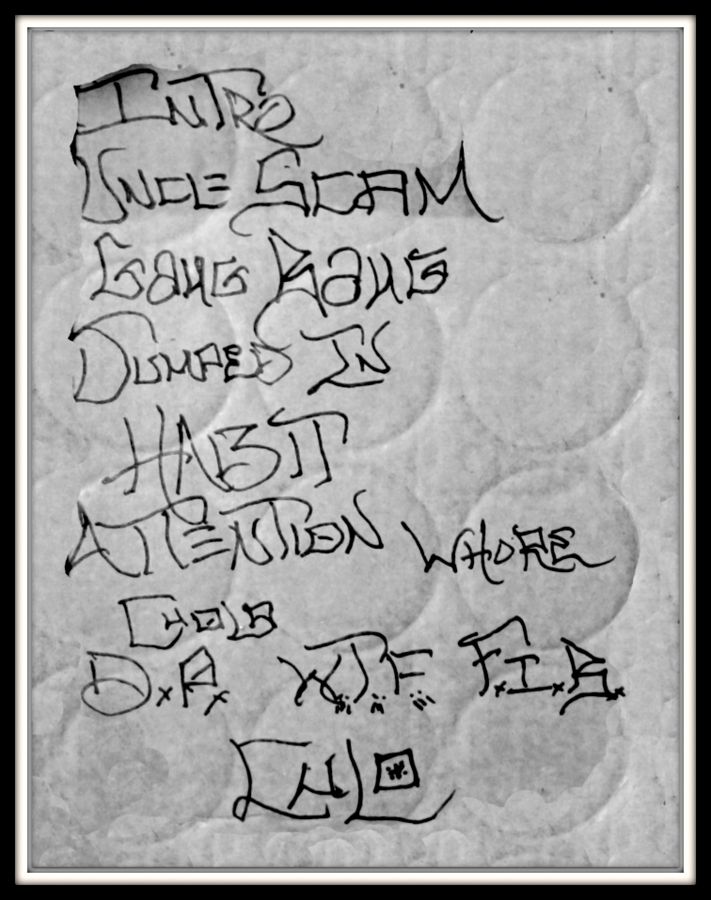 INTRO
UNCLE SCAM
GANG BANG
DUMPED IN
HABIT
ATTENTION WHORE
D.P. W.T.F. F.I.B.